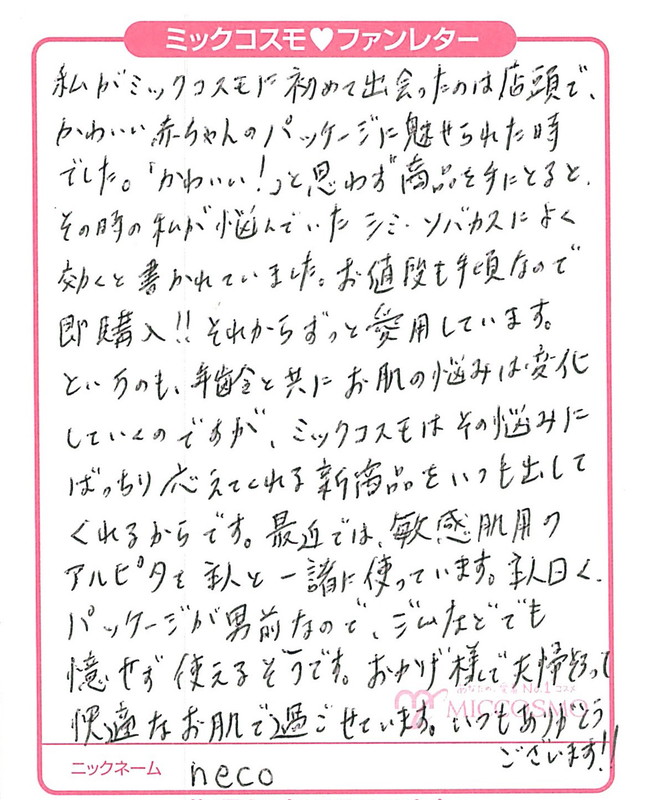 ミックコスモ♥ファンレター
私がミックコスモに初めて出会ったのは店頭で、
かわいい赤ちゃんのパッケージに魅せられた時
でした。「かわいい!」と思わず商品を手にとると、
その時の私が悩んでいたシミ・ソバカスによく
効くと書かれていました。お値段も手頃なので
即購入!!それからずっと愛用しています。
というのも、年齢と共にお肌の悩みは変化
していくのですが、ミックコスモはその悩みに
ばっちり応えてくれる新商品をいつも出して
くれるからです。最近では、敏感肌用の
アルピタを主人と一諸に使っています。主人曰く、
パッケージが男前なので、ジムなどでも
憶せず使えるそうです。おかげ様で夫婦揃って
快適なお肌で過ごせています。いつもありがとう
ございます!!
あなたの、定番No.1コスメ
MICCOSMO
ニックネーム neco